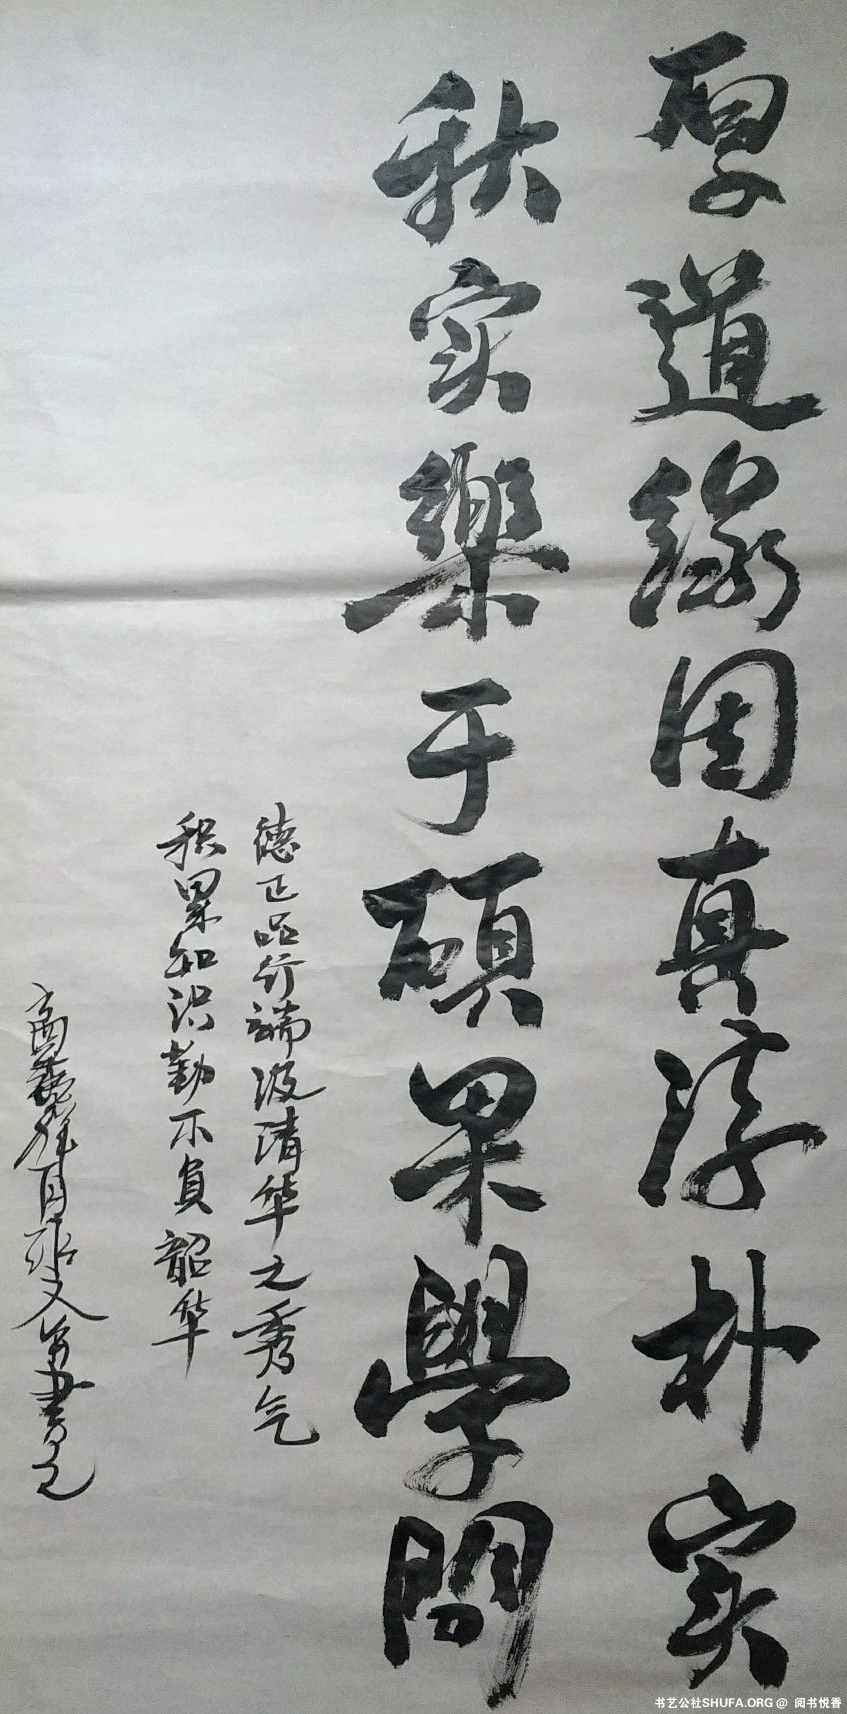 厚道缘固真淳朴实
秋实樂于碩果學問
德正品行端汲清华之秀气
积累知识勤不负韶华
书艺公社SHUFA.ORG @ 阅书悦香